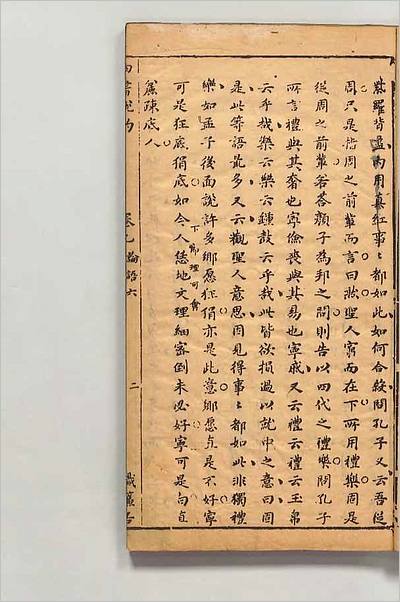 紫羅背盡用真紅事〻都如此如何合殺問孔子又云吾從
周只是指周之前輩而言曰然聖人窮而在下所用禮樂固是
從周之前輩若答顏子為邦之問則告以四代之禮樂問孔子
所言禮與其奢也寧儉喪與其易也寧戚又云禮云禮云玉帛
云乎哉樂云樂云鐘鼓云乎哉此皆欲損過以就中之意曰固
是此等語最多又云觀聖人意思因見得事〻都如此非獨禮
樂如孟子後面說許多鄉愿狂狷亦是此意鄉愿直是不好寧
可是狂底狷底如今人恁地文理細密倒未必好寧可是白直
麤疎底人
論語六
二